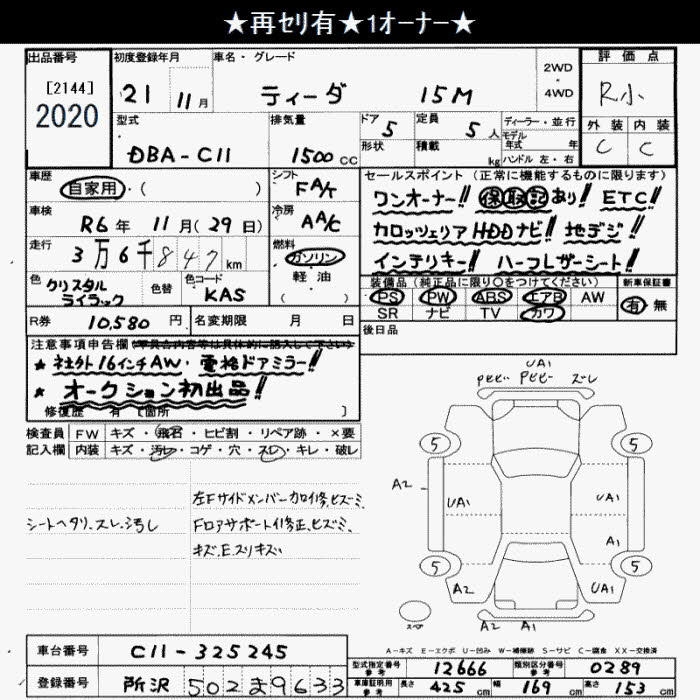 ★再セリ有★1オーナー★
出品番号 初度登録年月 車名・グレード 評価点
[2144] 2020
21 11月 ティーダ 15M
2WD
・
4WD
R小
外装 内装
C C
型式 排気量 ドア 定員 ディーラー・並行
DBA-C11 1500CC 5 5人
モデル年式 年
形状 積載 kg ハンドル 左・右
車歴 自家用・( )
シフト FA/T
車検 R6年 11月(29日)
冷房 AA/C
走行 3万6千847km
燃料 ガソリン・軽・油
色 クリスタルライラック 色替 色コード KAS
R券 10,580円 名変期限 月 日
セールスポイント(正常に機能するものに限ります)
ワンオーナー!! 保取記あり! ETC!!
カロッツェリアHDDナビ! 地デジ!
インテリキー! ハーフレザーシート!
装備品(純正品に限り○をつけてください) 新車保証書
PS PW ABS エアB AW 有・無
SR ナビ TV カワ
後日品
注意事項申告欄
★社外16インチAW・電格ドアミラー!
★オークション初出品!!
修復歴 有 [箇所 ]
検査員 FW キズ・飛石・ヒビ割・リペア跡・×要
記入欄 内装 キズ・汚レ・コゲ・穴・スレ・キレ・破レ
左Fサイドメンバーカロイ修、ヒズミ、
シートヘタリ、スレ、汚レ
Fロアサポートイ修正、ヒズミ、
キズ、E、スリキズ
UA1
PセビーPビー ズレ
5 5
A2 UA1 UA1
A1
5 5
A2 UA1
A2 A1
スペア
A-キズ E-エクボ U-凹み W-補修跡 S-サビ C-腐食 XX-交換済
車台番号 C11-325245
登録番号 所沢 502ま9633
型式指定番号 参考 12666 類別区分番号 参考 0289
車庫証明用 参考 長さ 425cm 幅 169cm 高さ 153cm